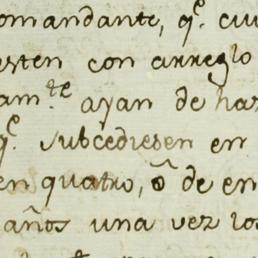 omandante, q.e cui
esten con arreglo
am.te ayan de ha
q.e subcediesen en
en quatro, ò de en
años una vez los